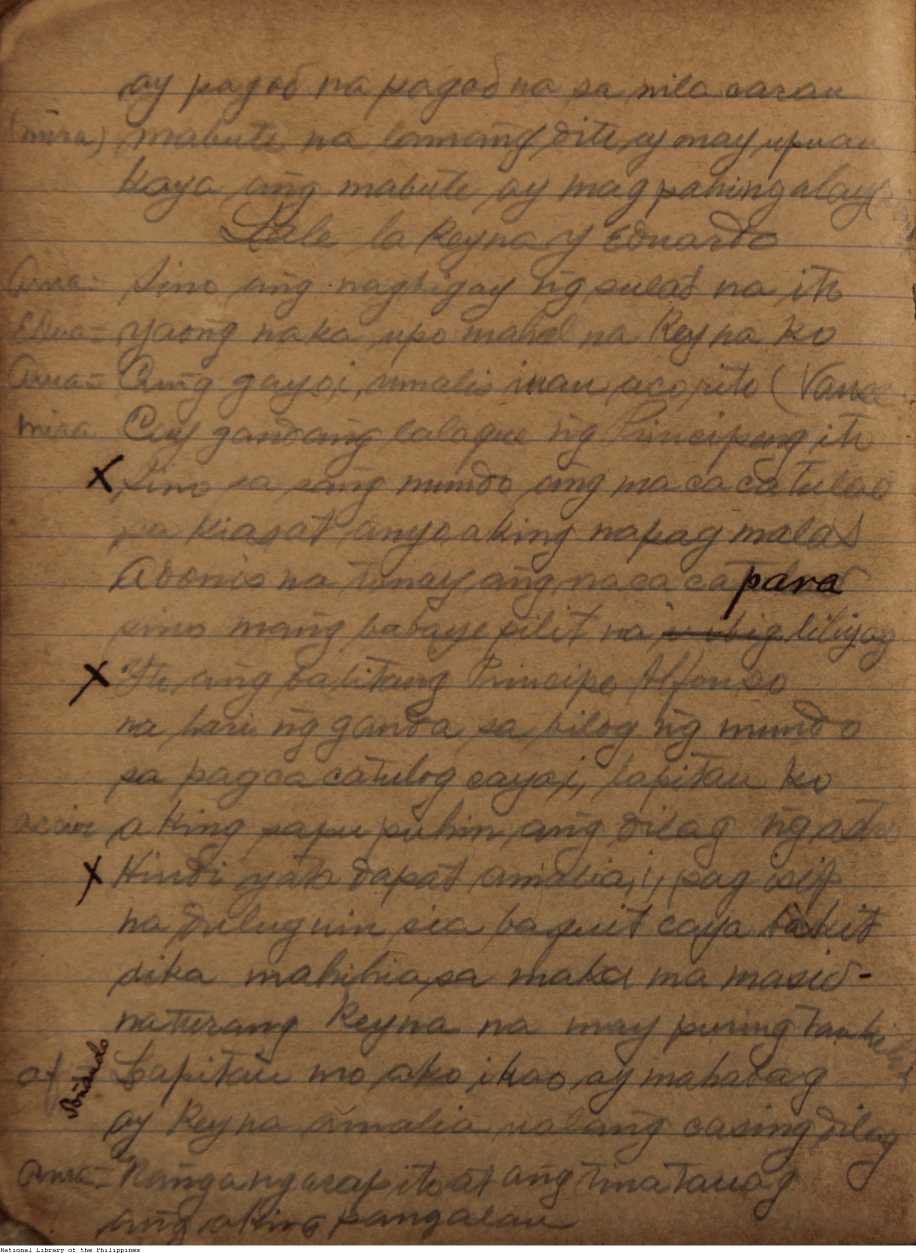 ay pagod na pagod na sa nila caran
(mira) mabute na lamang dite ay may upuan
kaya ang mabute ay mag pahingalay
Sale la Reyna y Eduardo
Ama- Sino ang nagbigay ng sulat na ito
Edua- yaong naka upo mahal na Reyna ko
Ama- Cung gayo,i, umalis icau aco,rito (Vanse
mira Cay gandang lalaque ng Principeng ito
X Sino sa sang mundo ang ma ca catulad
sa kiasat anyo aking napag malas
Adonis na tunay ang naca ca para
sino mang babaye pilit na liliyag
X Ito ang balitang Principe Alfonso
na hari ng ganda sa bilog ng mundo
sa pagca catulog caya,i, lapitan ko
accion aking sapu puhin ang dilag ng
X Hindi yata dapat amalia,i, pag isip
na siya baquit caya
sika sa maka ma masid-
naturang Reyna na may puring
af- Soñando Lapitan mo ako ikao ay mahabag
ay Reyna Amalia ualang casing dilag
Ama- Nanga ngarap ito at ang tinatauag
ang aking pangalan
National Library of the Philippines